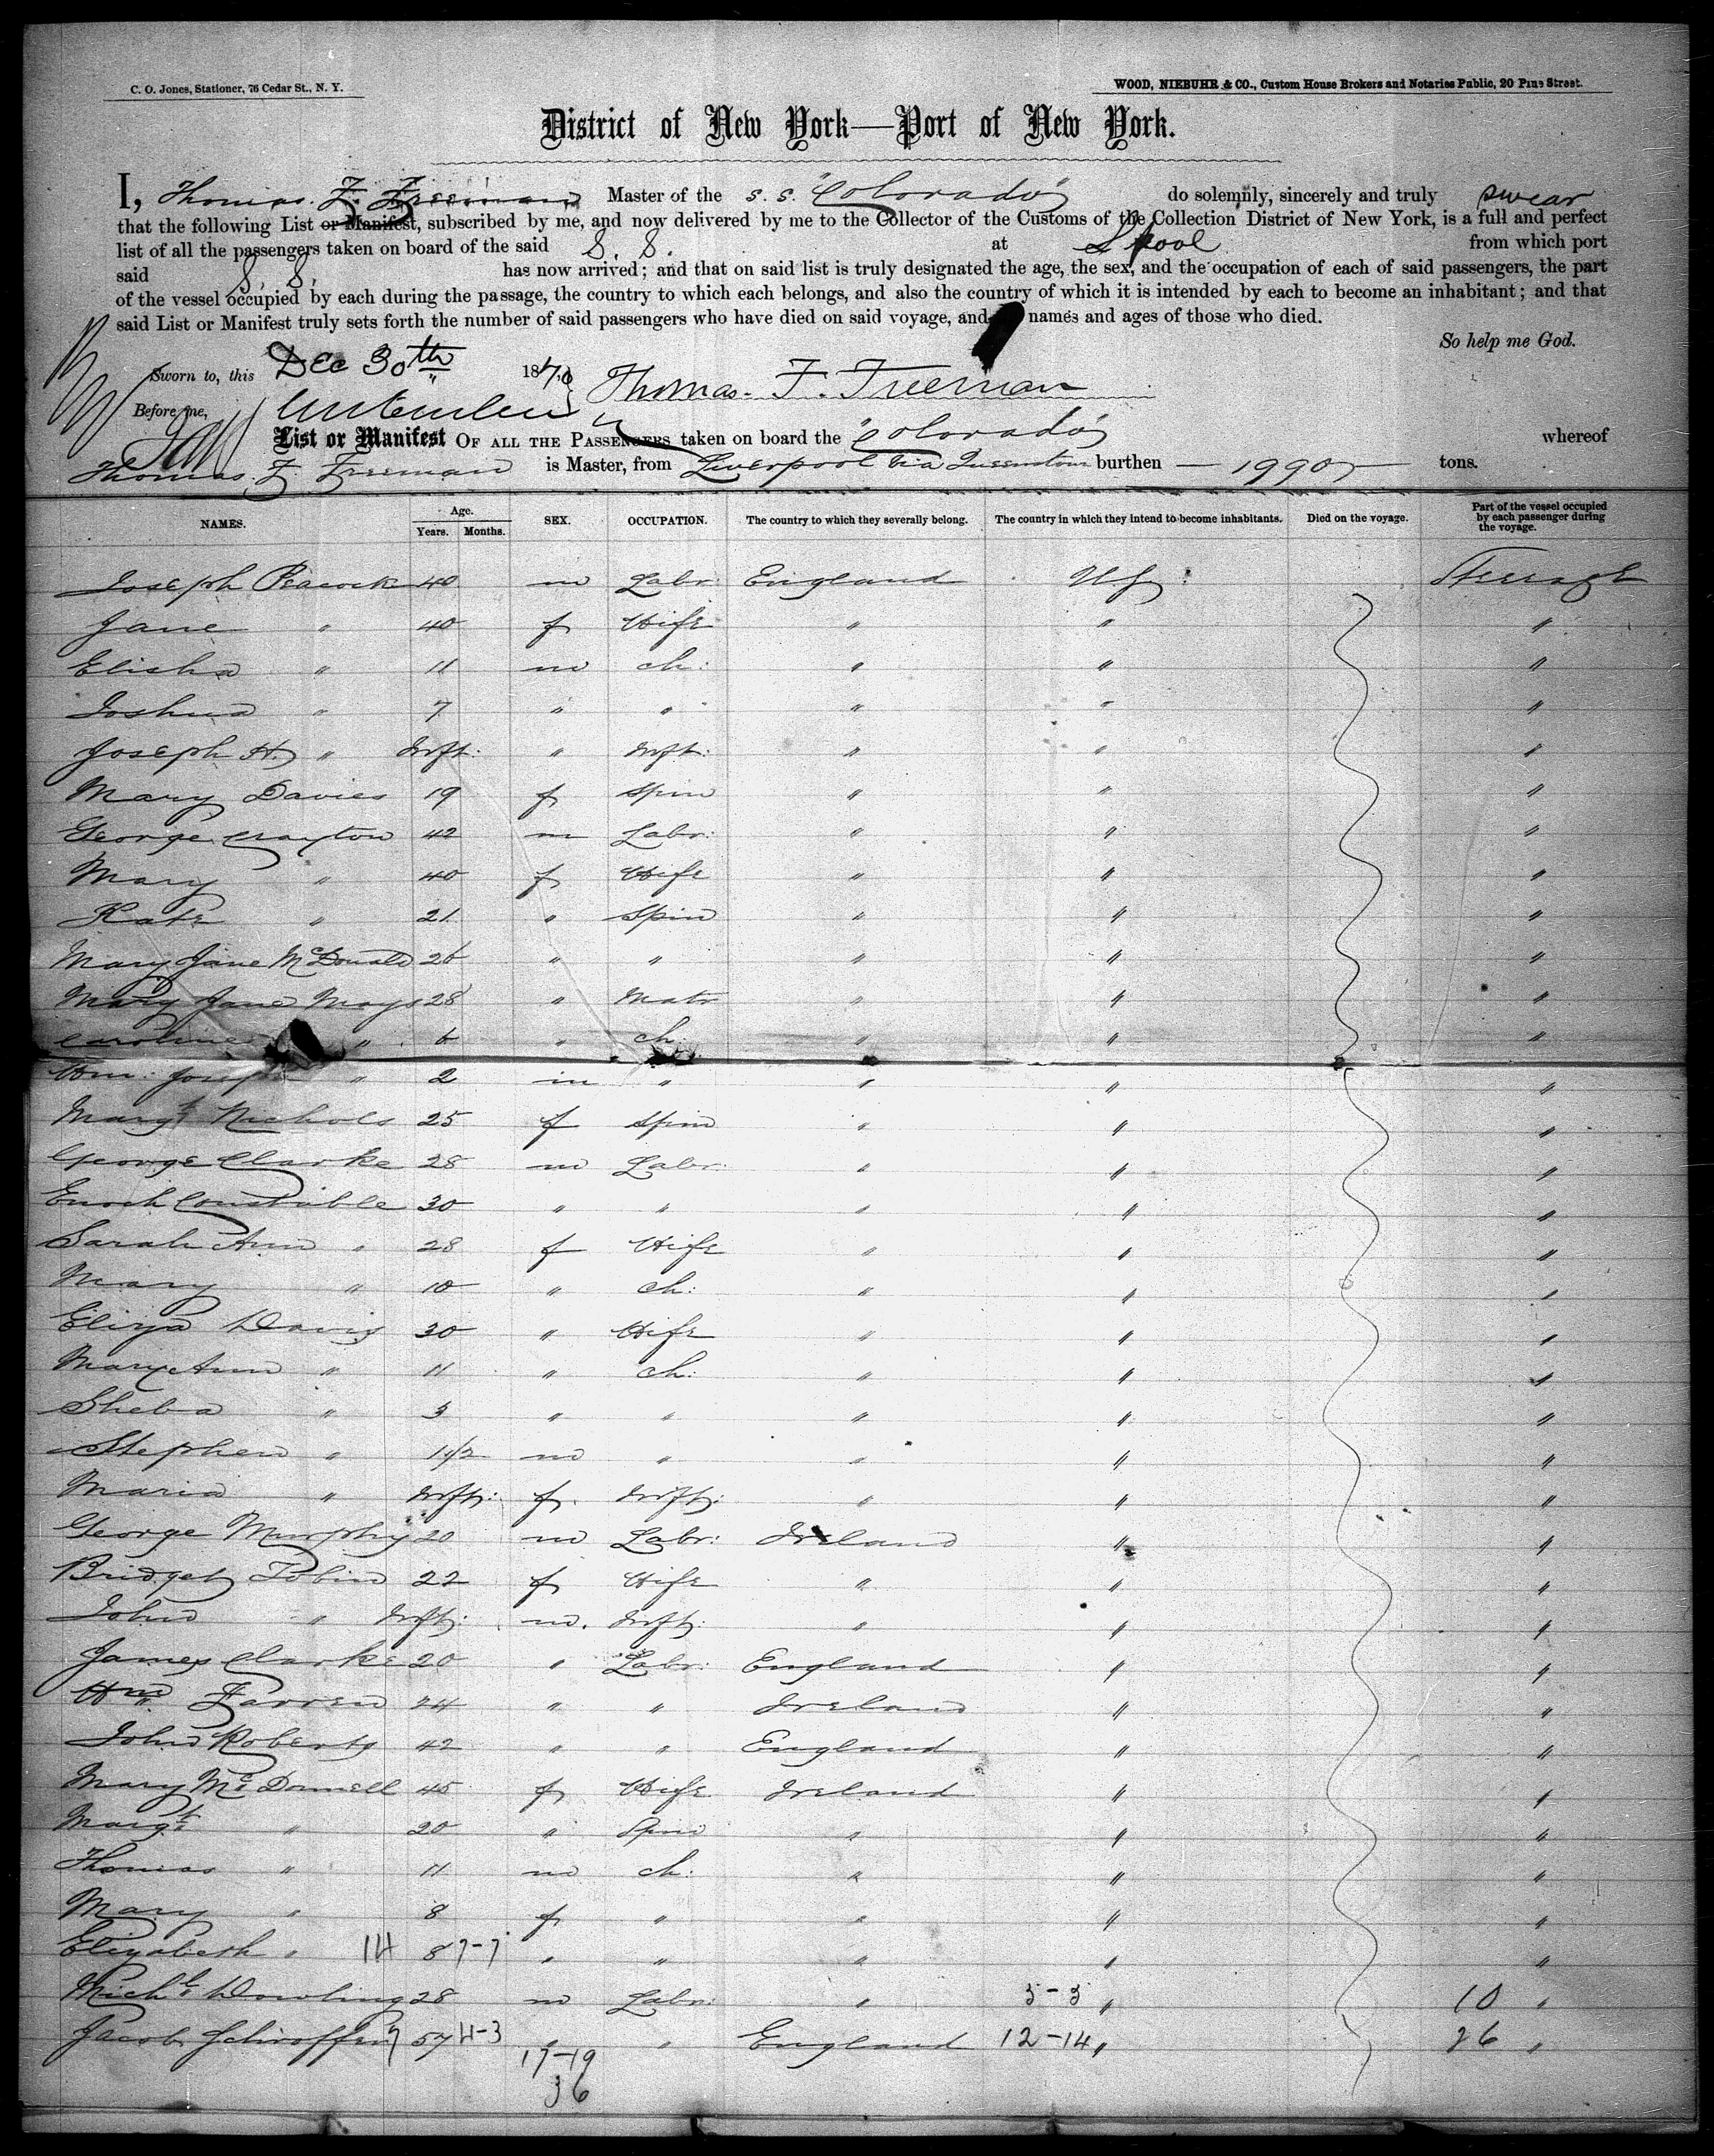 C. O. Jones, Stationer, 76 Cedar St., N. Y.
WOOD, NIEBUHR & CO., Custom House Brokers and Notaries Public, 20 Pine Street.
District of New York—Port of New York.
I, Thomas. F. Freeman Master of the S. S. "Colorado" do solemnly, sincerely and truly swear
that the following List or Manifest, subscribed by me, and now delivered by me to the Collector of the Customs of the Collection District of New York, is a full and perfect
list of all the passengers taken on board of the said S. S. at L'pool from which port
said S. S. has now arrived; and that on said list is truly designated the age, the sex, and the occupation of each of said passengers, the part
of the vessel occupied by each during the passage, the country to which each belongs, and also the country of which it is intended by each to become an inhabitant; and that
said List or Manifest truly sets forth the number of said passengers who have died on said voyage, and names and ages of those who died.
So help me God.
Sworn to, this Dec 30th 1870 Thomas. F. Freeman
Before me,
List or Manifest OF ALL THE PASSENGERS taken on board the "Colorado" whereof
Thomas. F. Freeman is Master, from Liverpool via Queenstown burthen — 1990 — tons.
NAMES. Age. Years. Months. SEX. OCCUPATION. The country to which they severally belong. The country in which they intend to become inhabitants. Died on the voyage. Part of the vessel occupied by each passenger during the voyage.
Joseph Peacock 40 m Labr: England US Steerage
Jane " 40 f Wife " " "
Elisha " 11 m ch: " " "
Joshua " 7 " " " " "
Joseph H. " Inft: " Inft: " " "
Mary Davies 19 f Spin " " "
George Crayton 42 m Labr: " " "
Mary " 40 f Wife " " "
Kate " 21 " Spin " " "
Mary Jane McDonald 26 " " " " "
Mary Jane Mays 28 " Matr " " "
Caroline " 6 " ch: " " "
Wm: Joseph " 2 m " " " "
Margt Nichols 25 f Spin " " "
George Clarke 28 m Labr: " " "
Enoch Constable 30 " " " " "
Sarah Ann " 28 f Wife " " "
Mary " 10 " ch: " " "
Eliza Davis 30 " Wife " " "
Mary Ann " 11 " ch: " " "
Sheba " 3 " " " " "
Stephen " 1 1/2 m " " " "
Maria " Inft: f. Inft: " " "
George Murphy 20 m Labr: Ireland " "
Bridget Tobin 22 f Wife " " "
John " Inft: m. Inft: " " "
James Clarke 20 " Labr: England " "
Wm Farren 24 " " Ireland " "
John Roberts 42 " " England " "
Mary McDonnell 45 f Wife Ireland " "
Margt " 20 " Spin " " "
Thomas " 11 m ch: " " "
Mary " 8 f " " " "
Elizabeth " 14 8 7-7 " " " " "
Michl Dowling 28 m Labr: " 3-3 " 10 "
Jacob 57 4-3 " " England 12-14 " 26 "
17-19
36